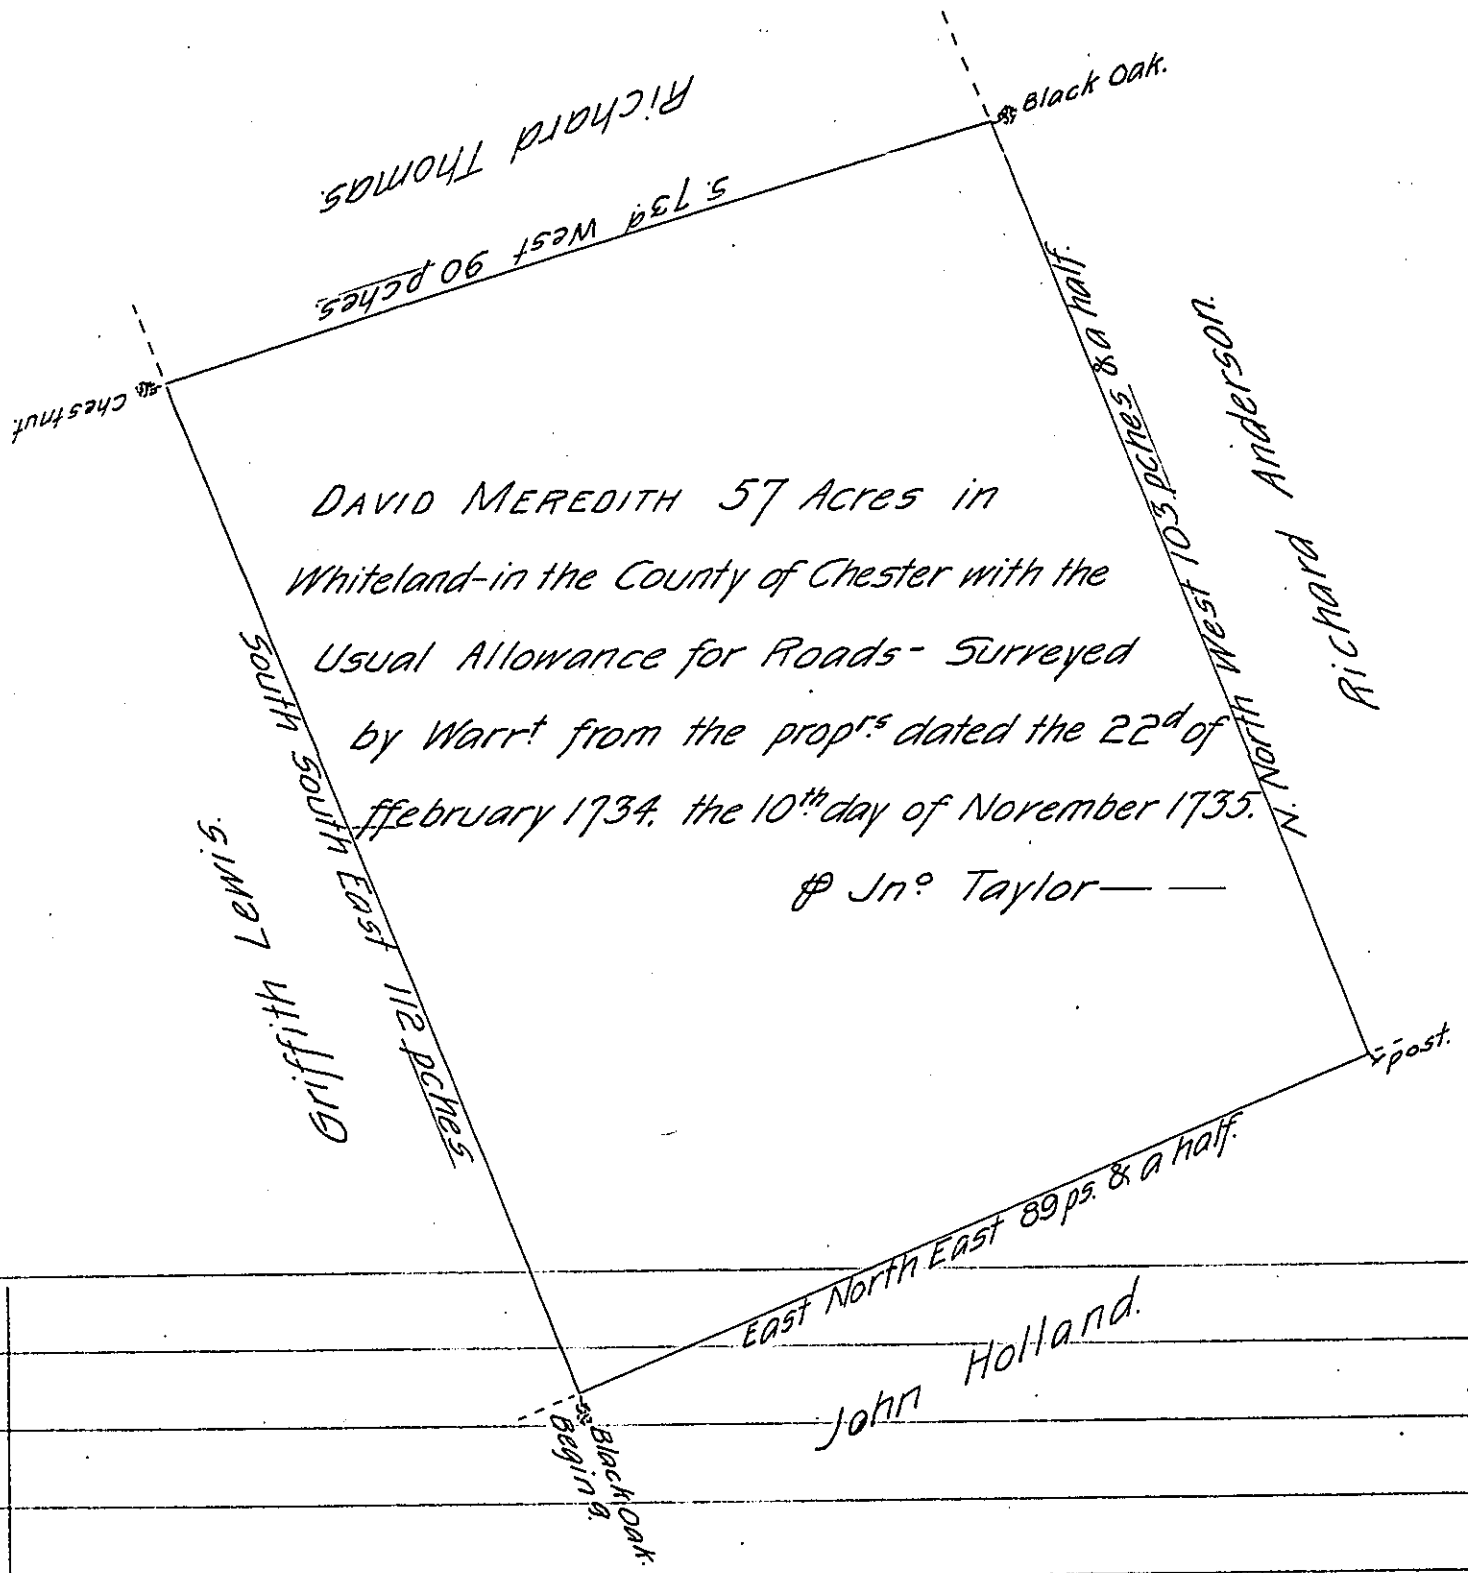 Black Oak.
Richard Thomas.
S. 73ᵈ West 90 pches.
Chestnut.
N. North West 103 pches & a half.
Richard Anderson.
DAVID MEREDITH 57 Acres in
Whiteland-in the County of Chester with the
Usual Allowance for Roads- Surveyed
by Warrᵗ from the propʳˢ dated the 22ᵈ of
ffebruary 1734. the 10ᵗʰ day of November 1735.
⅌ Jnº Taylor— —
South South East 112 pches
Griffith Lewis.
post.
East North East 89 ps. & a half.
John Holland.
Black Oak.
Begining.